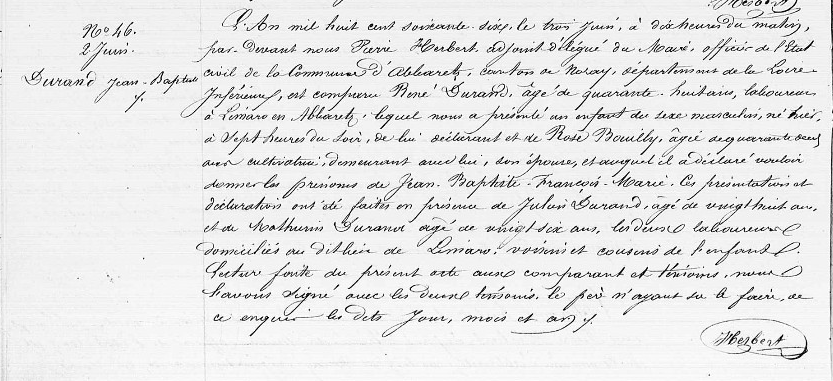 Herbert
No 46.
2 Juin.
Durand Jean-Baptiste
L'An mil huit cent soixante-six, le trois Juin, à dix heures du matin,
par-devant nous Pierre Herbert adjoint délégué du Maire, officier de l'Etat
civil de la Commune d'Abbaretz, canton de Nozay, département de la Loire
Inférieure, est comparu René Durand, âgé de quarante-huit ans, laboureur
à Limaro en Abbaretz, lequel nous a présenté un enfant du sexe masculin, né hier,
à Sept heures du Soir, de lui déclarant et de Rose Bouilly, âgée de quarante deux
ans cultivatrice, demeurant avec lui, son épouse, et auquel il a déclaré vouloir
donner les prénoms de Jean-Baptiste-François-Marie. Ces présentation et
déclaration ont été faites en présence de Julien Durand, âgé de vingt huit ans,
et de Mathurin Durand âgé de vingt six ans, les deux laboureurs
domiciliés au dit lieu de Limaro, voisins et cousins de l'enfant.
Lecture faite du présent acte aux comparant et témoins, nous
l'avons signé avec les deux témoins, le père n'ayant su le faire, de
ce enquis les dits Jour, mois et an
Herbert